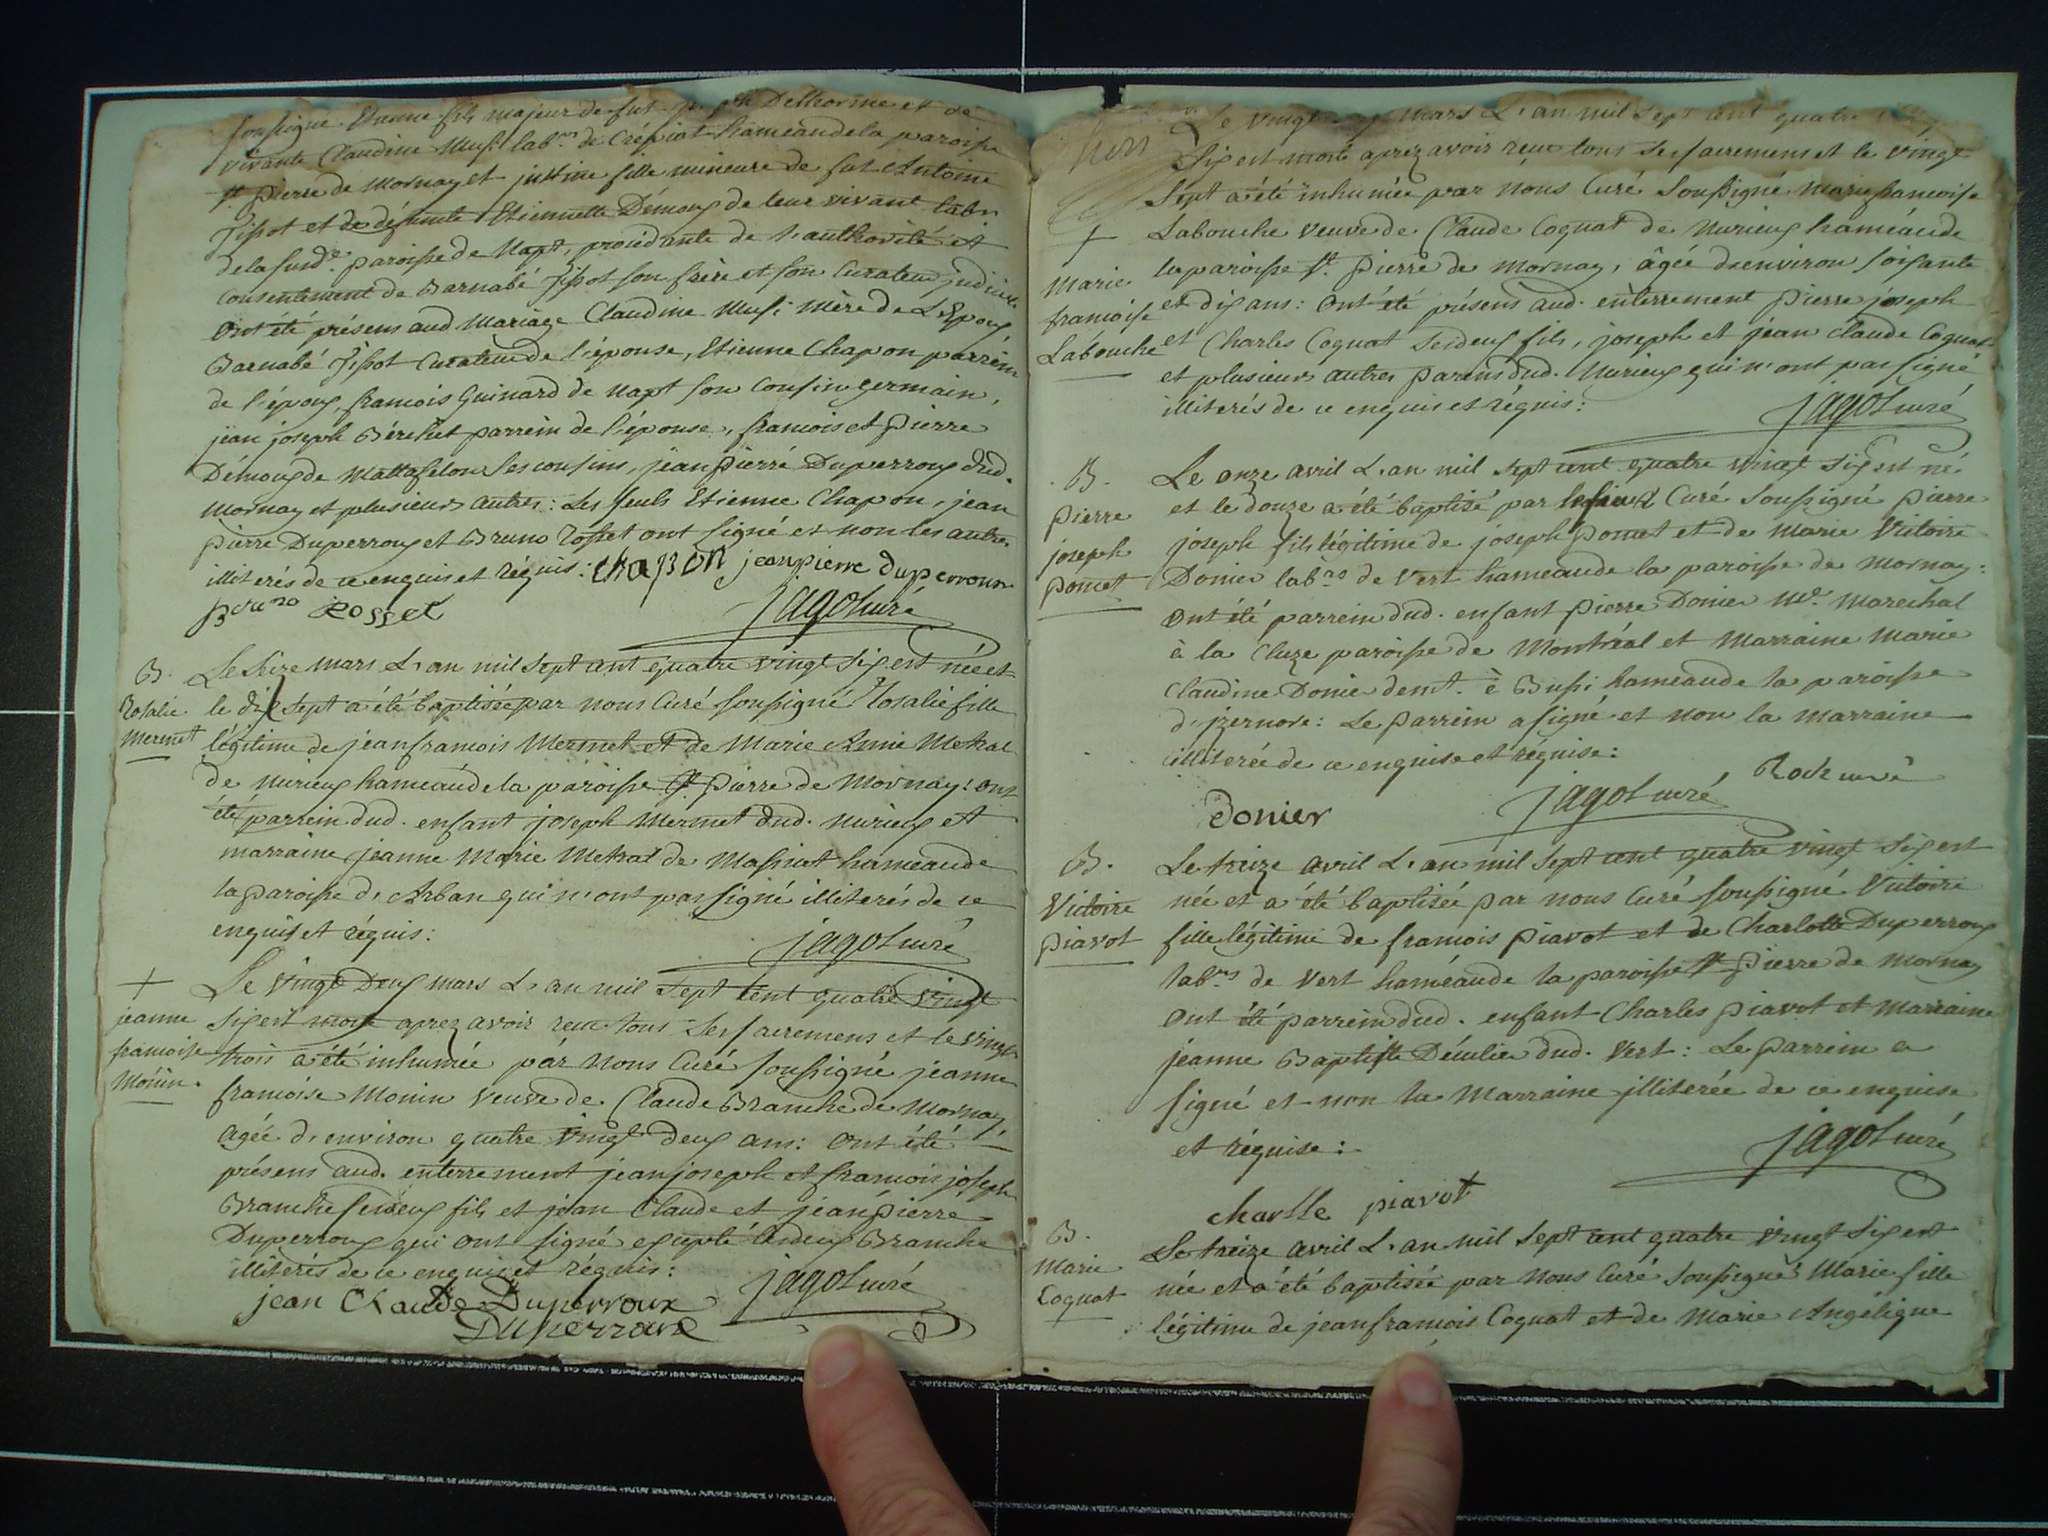 soussigné Etienne fils majeur de fut Delhorme et de
vivante Claudine Musi labrs de Crépiat hameau de la paroisse
st pierre de Mornay et justine fille mineure de fut Antoine
jissot et de défunte Etiennette Démoux de leur vivant labrs
de la susde paroisse de Napt, procédante de l'authorité et
consentement de Barnabé jissot son frère et son Curateur
ont été présens aud mariage Claudine Musi mère de L'Epoux
Barnabé jissot Curateur de l'épouse, Etienne Chapon parrein
de l'époux, francois Guinard de Napt son Cousin germain,
jean joseph Béréliet parrein de l'épouse, francois et pierre
Démoux de Mattafelon ses cousins, jean pierre Duperroux dud.
Mornay et plusieurs autres: Les seuls Etienne Chapon, jean
pierre Duperroux et Bruno Rosset ont signé et non les autres
illiterés de ce enquis et réquis: chapon jean pierre duperroux
Bruno Rosset jagot curé
B.
Rosalie
Mermet
Le seize mars L'an mil sept cent quatre vingt six est née et
le dix sept a été baptisée par nous Curé soussigné Rosalie fille
légitime de jean francois Mermet et de Marie Anne Metral
de Nurieux hameau de la paroisse st pierre de Mornay: ont
été parrein dud. enfant joseph Mermet dud. Nurieux et
marraine jeanne Marie Metral de Massiat hameau de
la paroisse d'Arban qui n'ont pas signé illiterés de ce
enquis et réquis: jagot curé
+
jeanne
francoise
Monin.
Le vingt Deux mars L'an mil sept cent quatre vingt
six est morte aprez avoir recu tous ses sacremens et le vingt
trois a été inhumée par nous Curé soussigné jeanne
francoise Monin veuve de Claude Branche de Mornay,
agée d'environ quatre vingt deux ans: ont été
présens aud. enterrement jean joseph et francois joseph
Branche ses deux fils et jean Claude et jean pierre
Duperroux qui ont signé excepté les deux Branche
illiterés de ce enquis et réquis: jagot curé
jean Claude Duperroux
Duperroux
Le vingt mars L'an mil sept cent quatre
six est morte aprez avoir recu tous ses sacremens et le vingt
sept a été inhumée par nous Curé soussigné Marie francoise
Labouche veuve de Claude Coquat de Nurieux hameau de
la paroisse st. pierre de Mornay, âgée d'environ soisante
et dix ans: ont été présens aud. enterrement pierre joseph
et Charles Coquat ses deux fils, joseph et jean Claude Coquat
et plusieurs autres parens dud. Nurieux qui n'ont pas signé
illiterés de ce enquis et réquis: jagot curé
+
Marie
francoise
Labouche
B.
pierre
joseph
pomet
Le onze avril L'an mil sept cent quatre vingt six est né
et le douze a été baptisé par Curé soussigné pierre
joseph fils légitime de joseph pomet et de Marie Victoire
Donier labrs de Vert hameau de la paroisse de Mornay:
ont été parrein dud. enfant pierre Donier Me. Marechal
à la Cluze paroisse de Montréal et Marraine Marie
Claudine Donier demt. è Bussi hameau de la paroisse
d'jzernore: Le parrein a signé et non la Marraine
illiterée de ce enquise et réquise: Roch curé
Donier jagot curé
B.
Victoire
piavot
Le treize avril L'an mil sept cent quatre vingt six est
née et a été baptisée par nous Curé soussigné Victoire
fille légitime de francois piavot et de Charlotte Duperroux
labrs de Vert hameau de la paroisse st pierre de Mornay
ont été parrein dud. enfant Charles piavot et Marraine
jeanne Baptiste dud. Vert: Le parrein a
signé et non la Marraine illiterée de ce enquise
et réquise: jagot curé
charlle piavot
B.
Marie
Coquat
Le treize avril L'an mil sept cent quatre vingt six est
née et a été baptisée par nous Curé soussigné Marie fille
légitime de jean francois Coquat et de Marie Angélique